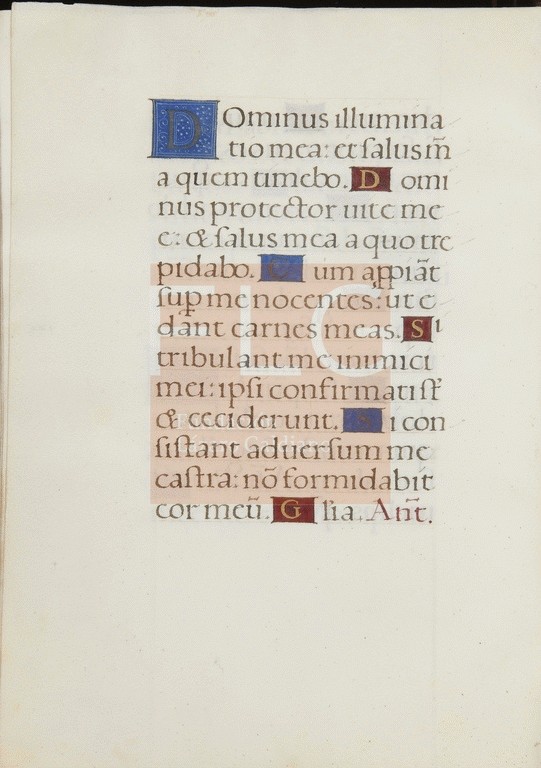 DOminus illumina
tio mea: et salus m̄
a quem timebo. D omi
nus protector uite me
e: & salus mea a quo tre
pidabo. C um appīāt
sup me nocentes: ut e
dānt carnes meas. S i
tribulant me inimici
mei: ipsi confirmati st̄
& ceciderunt. S i con
sistant aduersum me
castra: nō formidabit
cor meū. G lia. Añt.
FLG